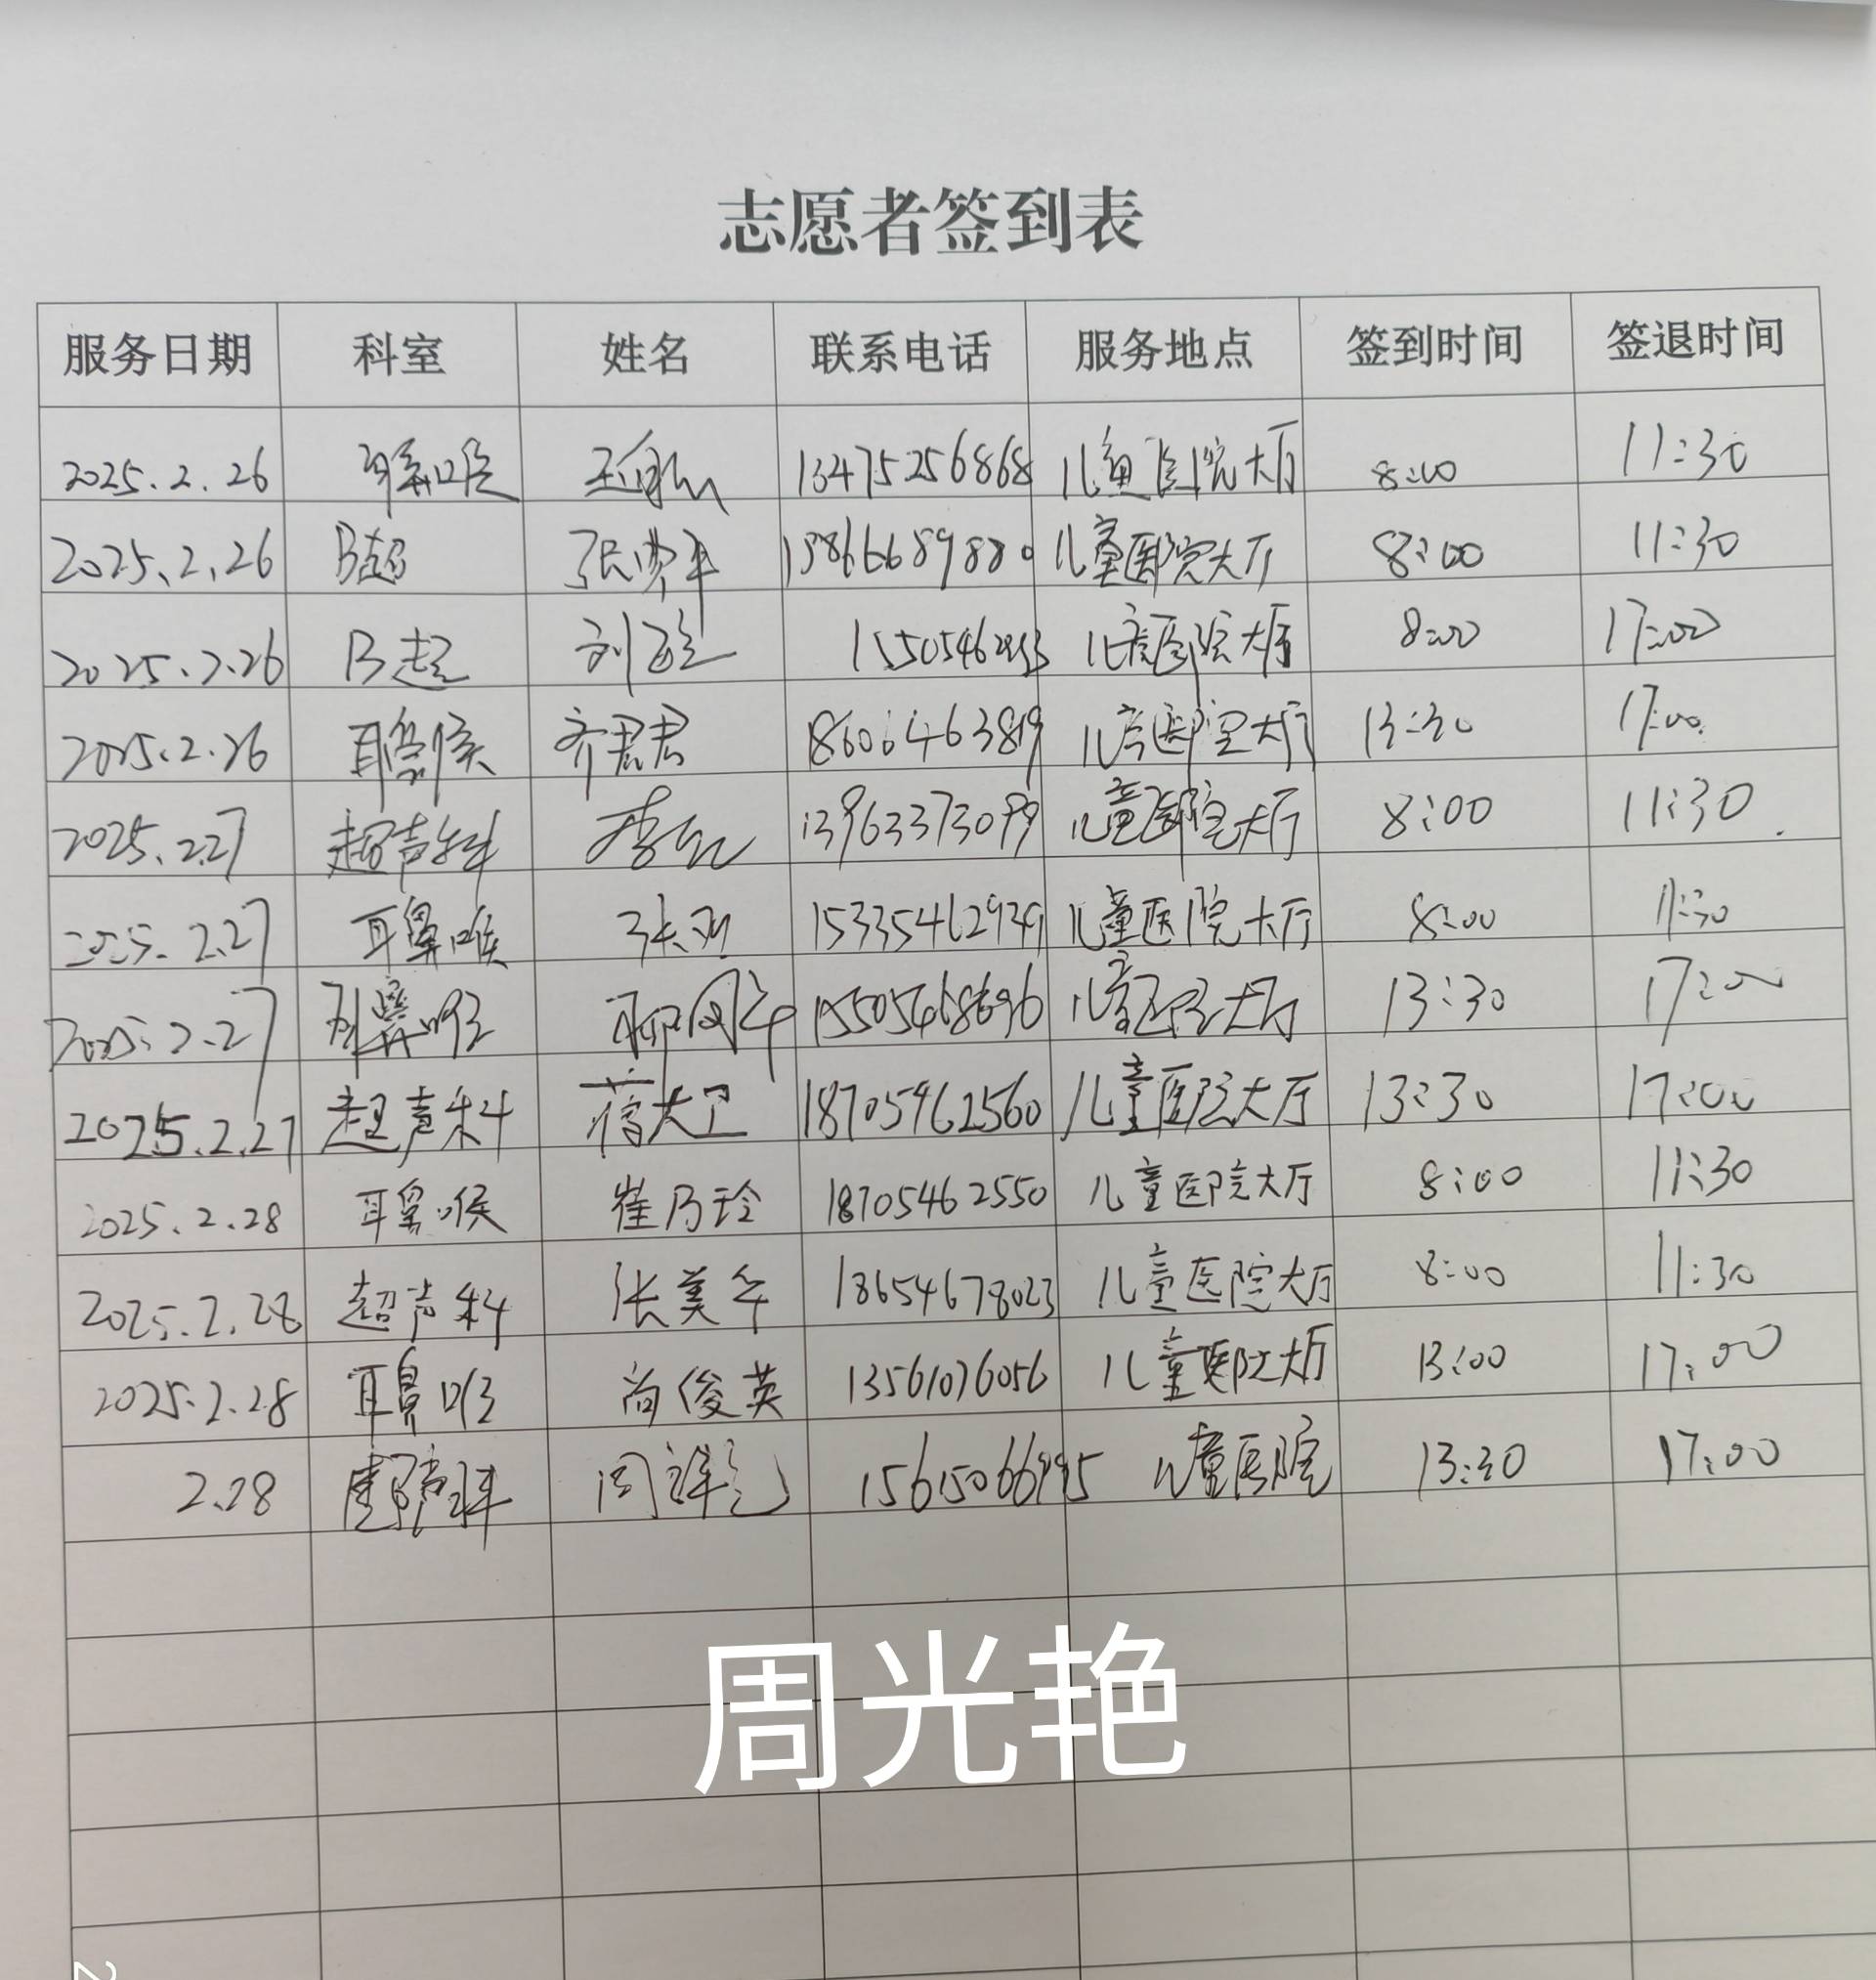 志愿者签到表
服务日期 科室 姓名 联系电话 服务地点 签到时间 签退时间
2025.2.26 耳鼻喉 13475256868 儿童医院大厅 8:00 11:30
2025.2.26 B超 张 13866689880 儿童医院大厅 8:00 11:30
2025.2.26 B超 刘 儿童医院大厅 8:00 17:00
2025.2.26 耳鼻喉 齐君君 儿童医院大厅 13:30 17:00
2025.2.27 超声科 李 13963373099 儿童医院大厅 8:00 11:30
2025.2.27 耳鼻喉 张 15335462939 儿童医院大厅 8:00 11:30
2025.2.27 耳鼻喉 15505468696 儿童医院大厅 13:30 17:00
2025.2.27 超声科 蒋大卫 18705462560 儿童医院大厅 13:30 17:00
2025.2.28 耳鼻喉 崔乃玲 18705462550 儿童医院大厅 8:00 11:30
2025.2.28 超声科 张美华 18654678023 儿童医院大厅 8:00 11:30
2025.2.28 耳鼻喉 尚俊英 13561076056 儿童医院大厅 13:00 17:00
2.28 超声科 周 儿童医院 13:30 17:00
周光艳